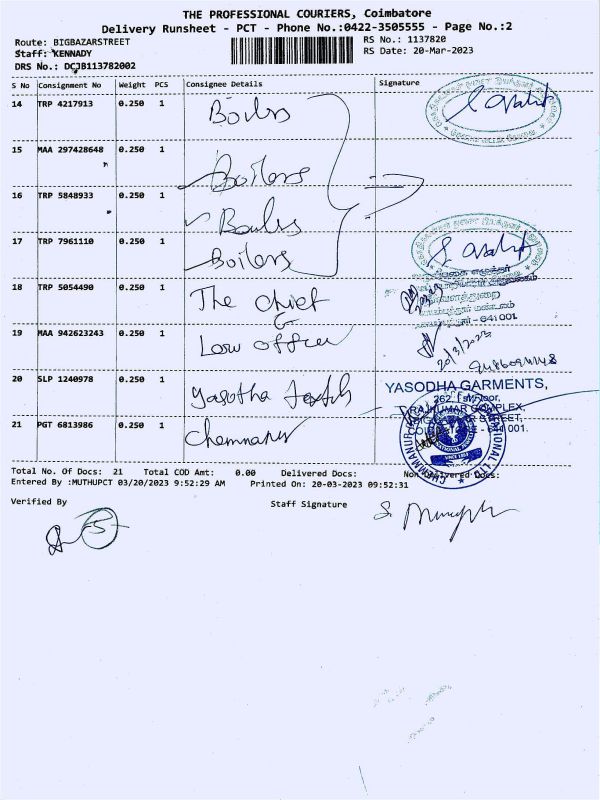 THE PROFESSIONAL COURIERS, Coimbatore
Delivery Runsheet - PCT - Phone No.:0422-3505555 - Page No.:2
Route: BIGBAZARSTREET
RS No.: 1137820
Staff: KENNADY
RS Date: 20-Mar-2023
DRS No.: DCJB113782002
S No Consignment No Weight PCS Consignee Details Signature
14 TRP 4217913 0.250 1 Boilers
15 MAA 297428648 0.250 1 Boilers
16 TRP 5848933 0.250 1 Boilers
17 TRP 7961110 0.250 1 Boilers
18 TRP 5054490 0.250 1 The Chief
641 001
19 MAA 942623243 0.250 1 Law officer
20/3/2023
20 SLP 1240978 0.250 1 Yasotha
YASODHA GARMENTS,
21 PGT 6813986 0.250 1
Total No. Of Docs: 21 Total COD Amt: 0.00 Delivered Docs: Non Delivered Docs:
Entered By :MUTHUPCT 03/20/2023 9:52:29 AM Printed On: 20-03-2023 09:52:31
Verified By
Staff Signature